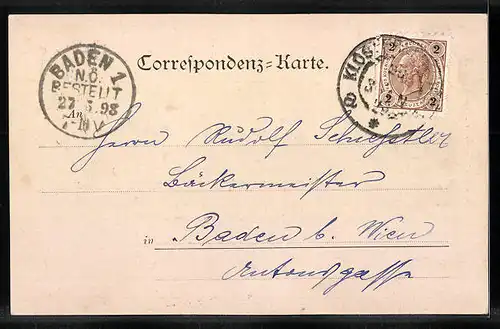 BADEN 1
N.Ö.
BESTELLT
27 5.98
Correspondenz=Karte.
KLOS
2 2
2 2
An
Herrn Rudolf
Bäckermeister
in Baden b. Wien
Antonsgasse